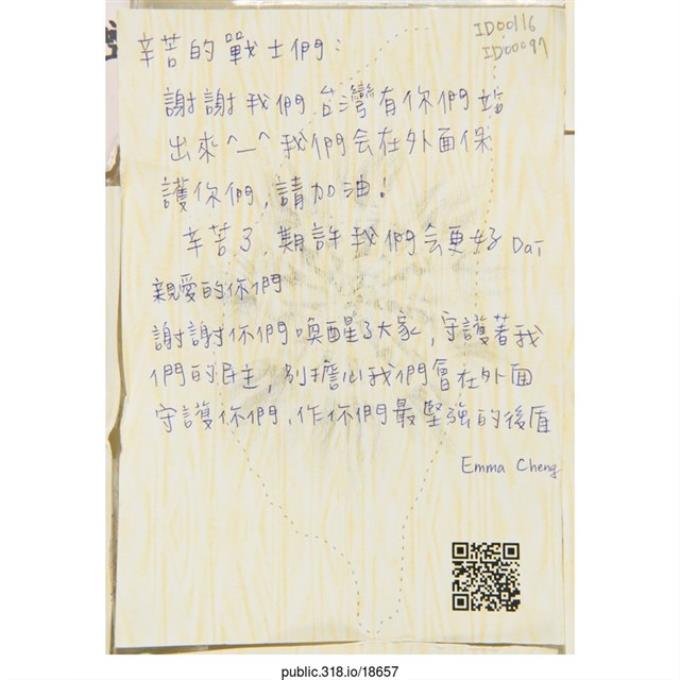 ID00116
ID00097
辛苦的戰士們：
謝謝我們台灣有你們站
出來^_^我們会在外面保
護你們,請加油!
辛苦了 期許我們会更好 Dai
親愛的你們
謝謝你們喚醒了大家,守護著我
們的民主,別擔心我們會在外面
守護你們,作你們最堅強的後盾
Emma Cheng
public.318.io/18657